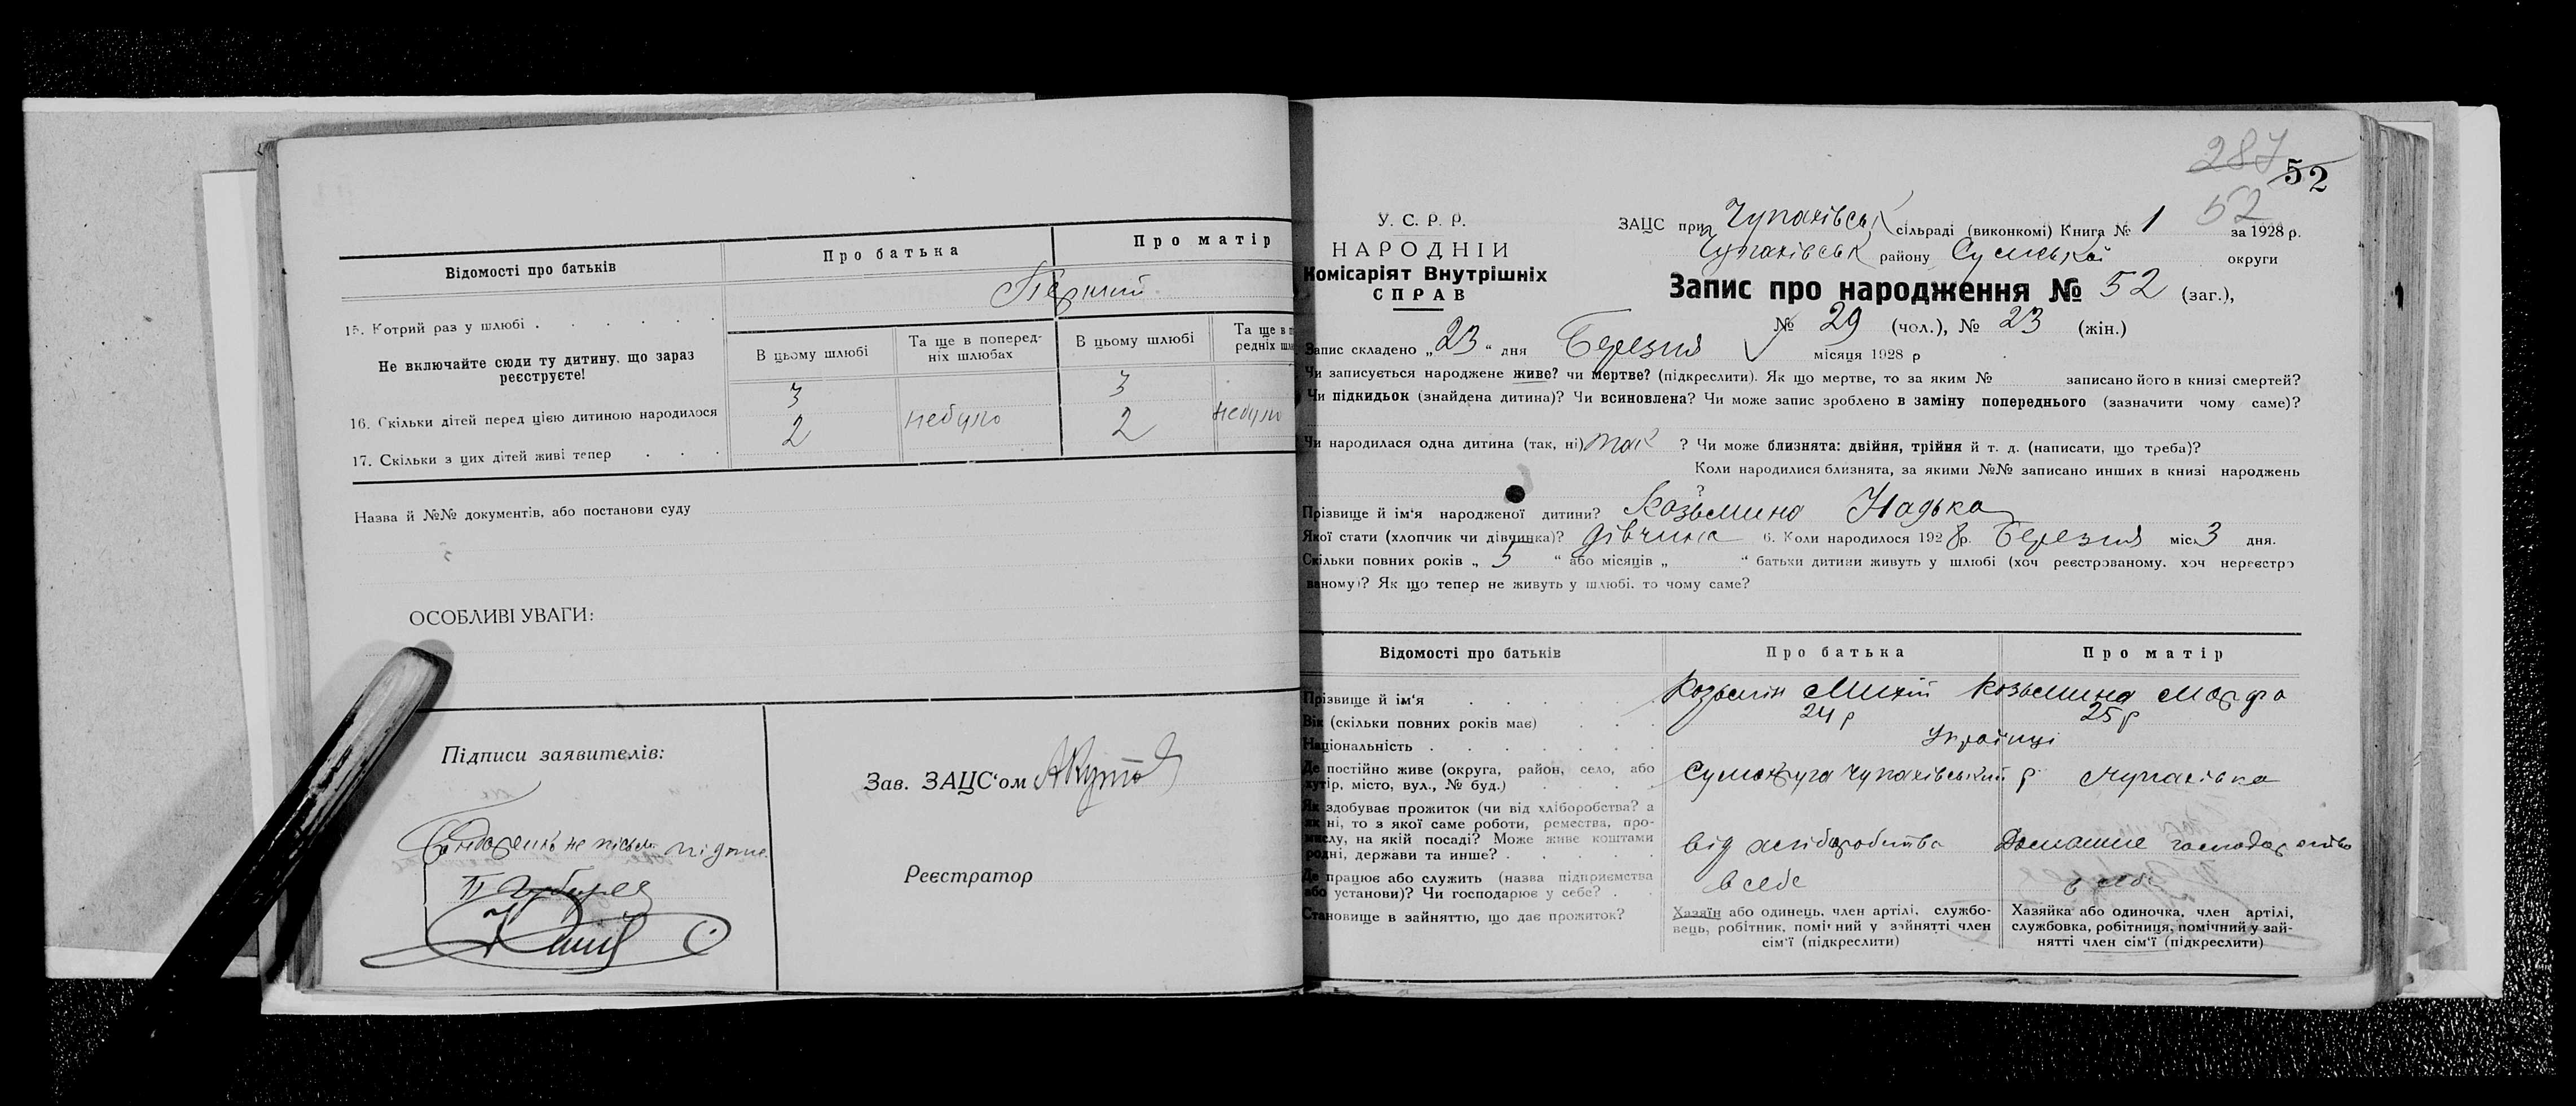 Відомості про батьків
Про батька
Про матір
15. Котрий раз у шлюбі
Перший
Не включайте сюди ту дитину, що зараз реєструєте!
В цьому шлюбі
Та ще в поперед-
ніх шлюбах
В цьому шлюбі
Та ще в п
редніх шл
16. Скільки дітей перед цією дитиною народилося
3
3
17. Скільки з цих дітей живі тепер
2
небуло
2
небуло
Назва й №№ документів, або постанови суду
ОСОБЛИВІ УВАГИ:
Підписи заявителів:
Зав. ЗАЦС'ом
Реєстратор
287
52
52
У. С. Р. Р.
НАРОДНІЙ
Комісаріят Внутрішніх
СПРАВ
ЗАЦС при Чупахівськ сільраді (виконкомі) Книга № 1 за 1928 р.
Чупахівськ району Сумської округи
Запис про народження № 52 (заг.),
№ 29 (чол.), № 23 (жін.)
Запис складено „23“ дня Березня місяця 1928 р
Чи записується народжене живе? чи мертве? (підкреслити). Як що мертве, то за яким № записано його в книзі смертей?
Чи підкидьок (знайдена дитина)? Чи всиновлена? Чи може запис зроблено в заміну попереднього (зазначити чому саме)?
Чи народилася одна дитина (так, ні) так ? Чи може близнята: двійня, трійня й т. д. (написати, що треба)?
Коли народилися близнята, за якими №№ записано инших в книзі народжень
?
Прізвище й ім'я народженої дитини? Козьмина Надька
Якої стати (хлопчик чи дівчинка)? дівчина 6. Коли народилося 1928 р. Березня міс. 3 дня.
Скільки повних років „ 5 “ або місяців „ “ батьки дитини живуть у шлюбі (хоч реєстрованому, хоч нереєстро
ваному)? Як що тепер не живуть у шлюбі, то чому саме?
Відомості про батьків
Про батька
Про матір
Прізвище й ім'я
Козьмін Михій
Козьмина Марфа
Вік (скільки повних років має)
24 р
25 р
Національність
Українці
Де постійно живе (округа, район, село, або
хутір, місто, вул., № буд.)
Сумокруга Чупахівський р Чупахівка
Як здобуває прожиток (чи від хліборобства? а
як ні, то з якої саме роботи, ремества, про-
мислу, на якій посаді? Може живе коштами
родні, держави та инше?
від хліборобства
Домашне господарство
Де працює або служить (назва підприємства
або установи)? Чи господарює у себе?
в себе
в себе
Становище в зайняттю, що дає прожиток?
Хазяїн або одинець, член артілі, службо-
вець, робітник, помічний у зайнятті член
сім'ї (підкреслити)
Хазяйка або одиночка, член артілі,
службовка, робітниця, помічний у зай-
нятті член сім'ї (підкреслити)